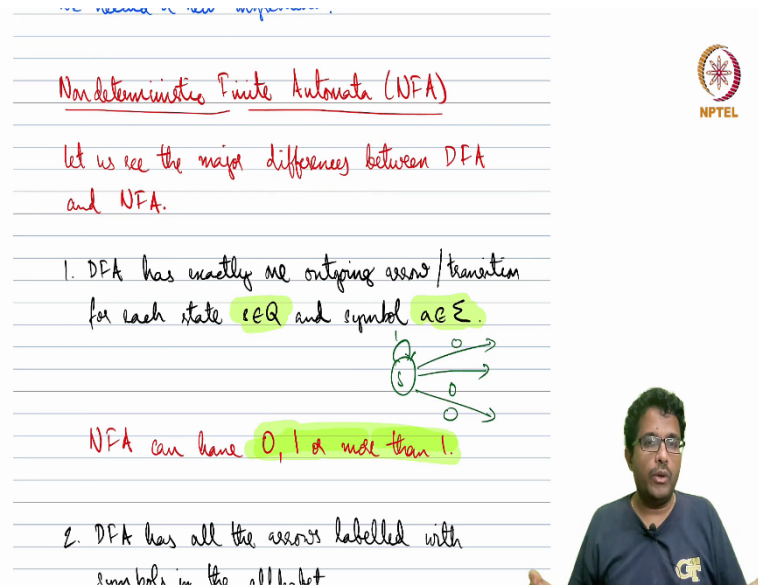 Nondeterministic Finite Automata (NFA)
NPTEL
let us see the major differences between DFA
and NFA.
1. DFA has exactly one outgoing arrow/transition
for each state s∈Q and symbol a∈Σ.
1
0
S
0
0
NFA can have 0, 1 or more than 1.
2. DFA has all the arrows labelled with
symbols in the alphabet
GT